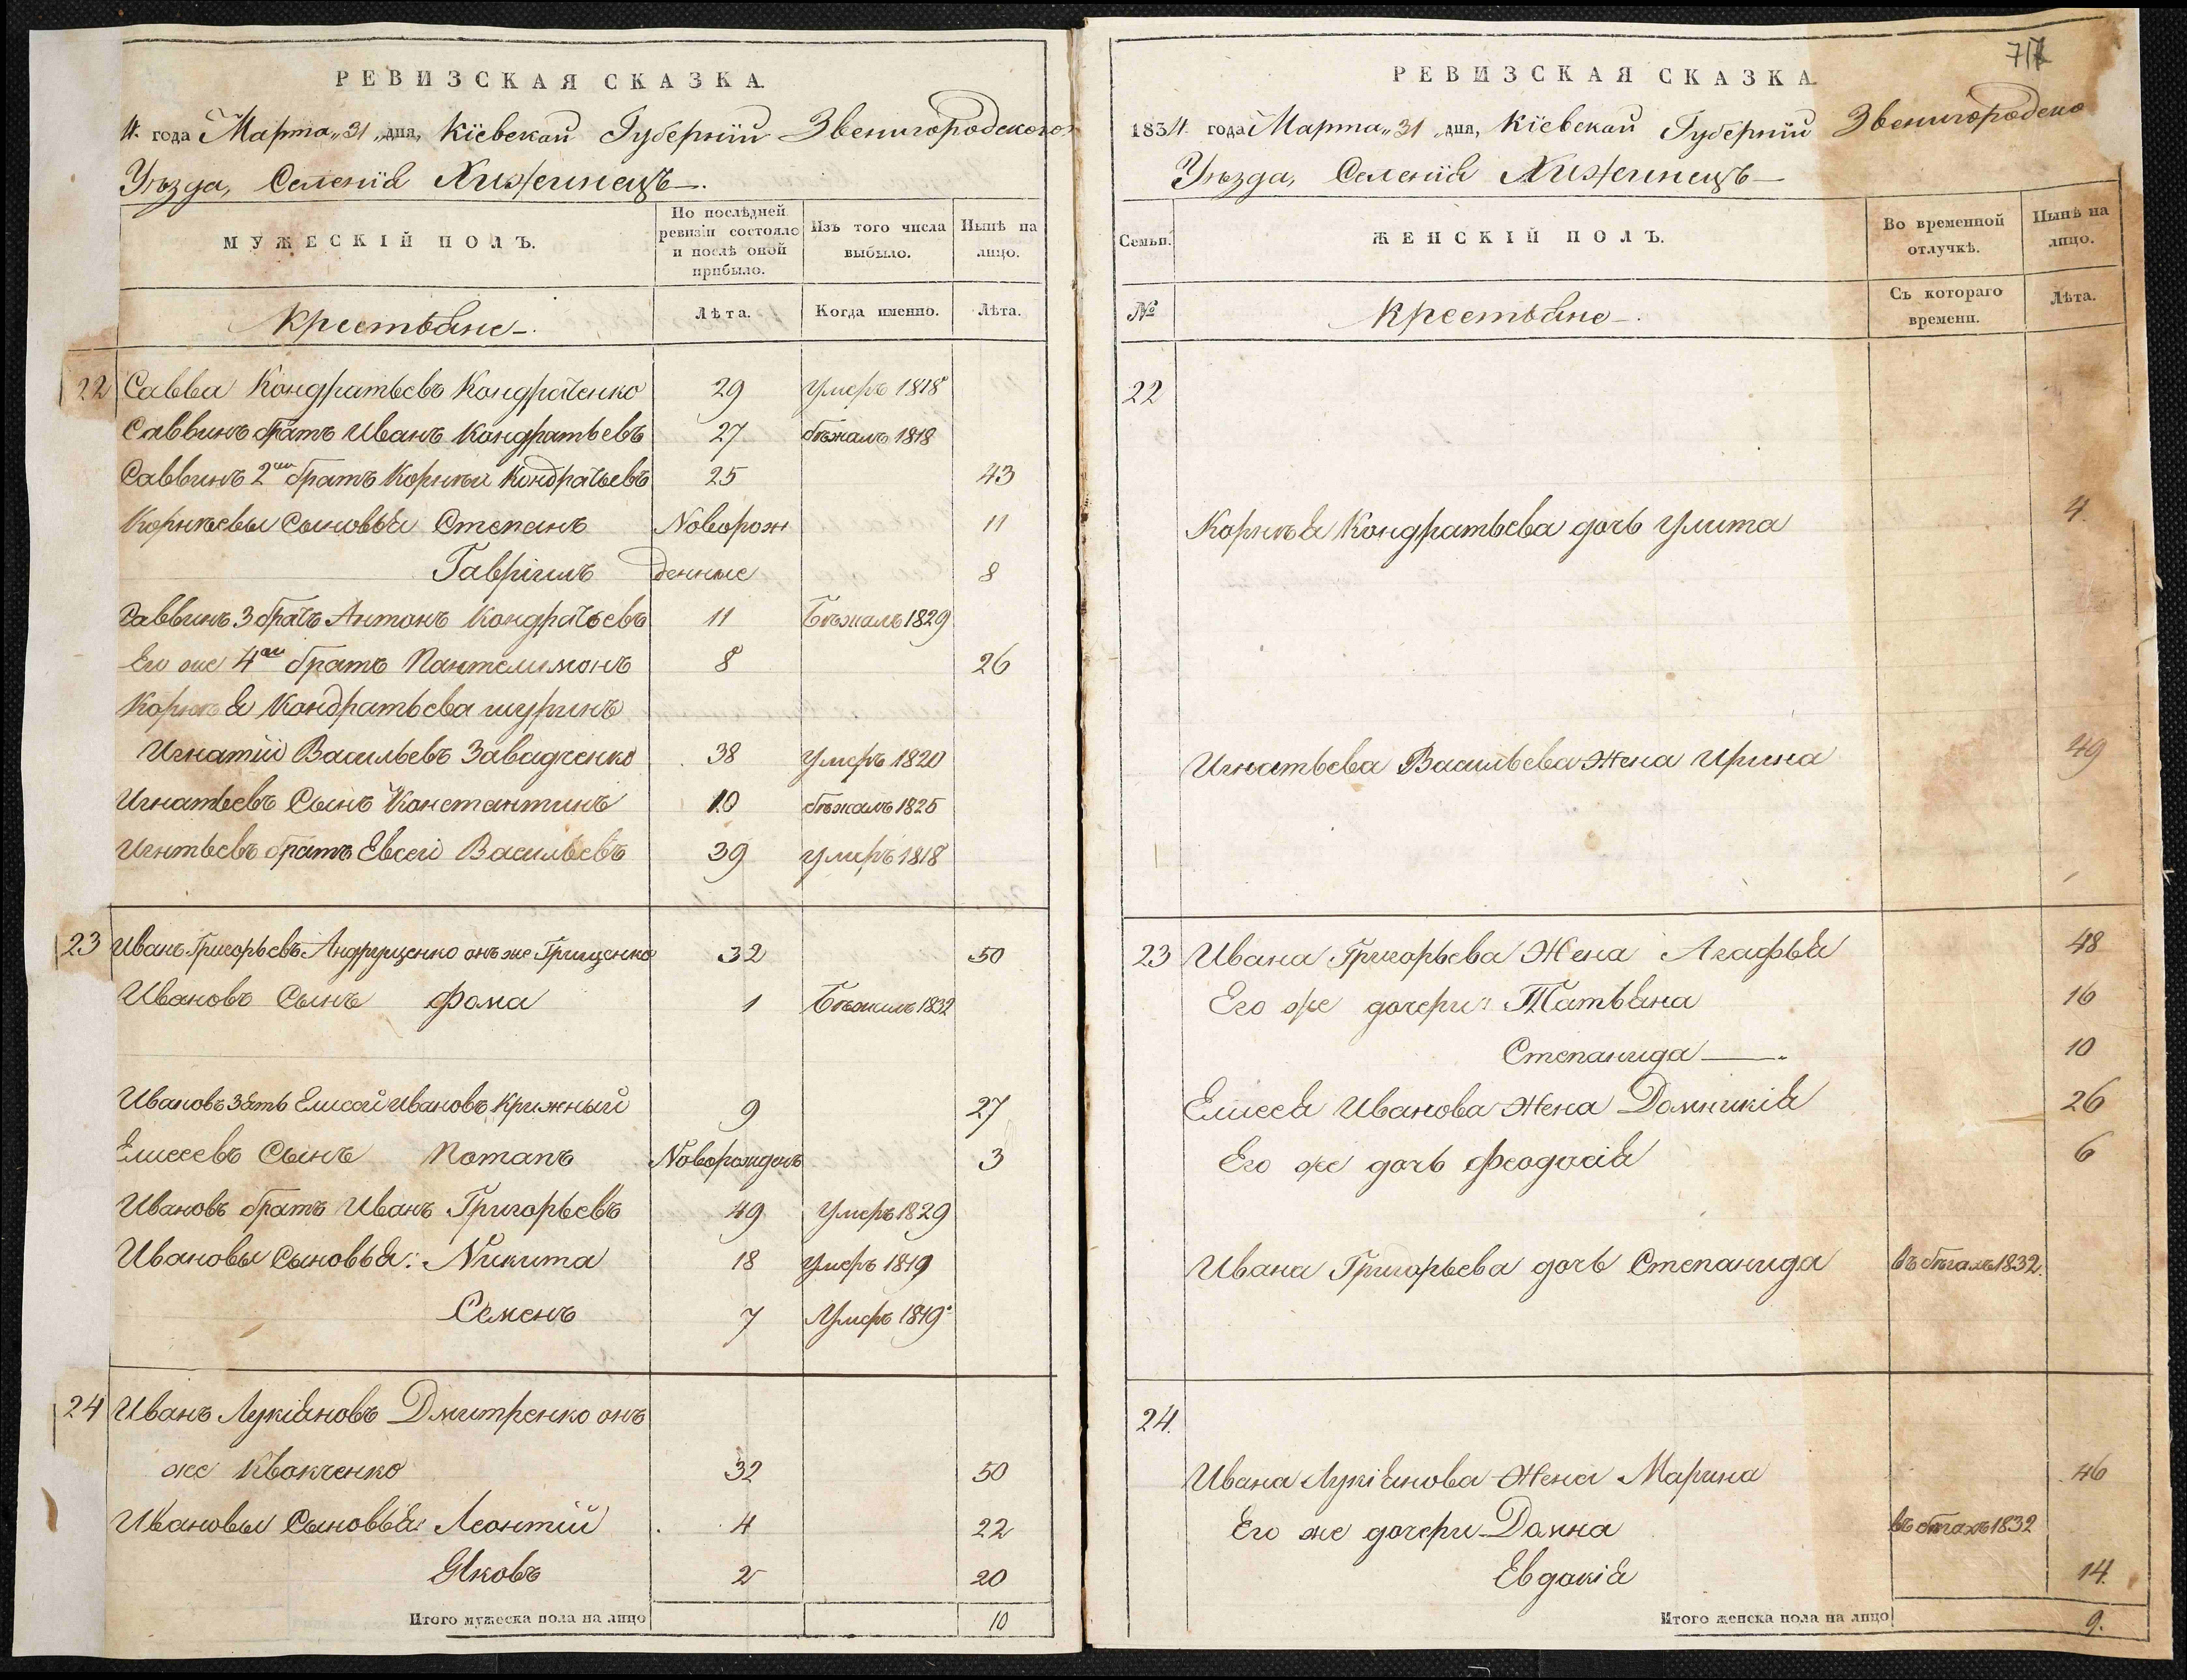 РЕВИЗСКАЯ СКАЗКА.
4. года Марта „31„ дня, Кіевской Губерніи Звенигородского
Уѣзда, Селенія Хижинецъ
МУЖЕСКІЙ ПОЛЪ.
По послѣдней ревизіи состояло и послѣ оной прибыло.
Изъ того числа выбыло.
Нынѣ на лицо.
Крестьяне
Лѣта.
Когда именно.
Лѣта.
22 Савва Кондратьевъ Кондратенко 29 Умеръ 1818
Саввинъ братъ Иванъ Кондратьевъ 27 бѣжалъ 1818
Саввинъ 2ой братъ Корнѣй Кондратьевъ 25 43
Корнѣевы Сыновья Степанъ Новорож 11
Гавріилъ денные 8
Саввинъ 3 братъ Антонъ Кондратьевъ 11 Бѣжалъ 1829
Его же 4ой братъ Пантелимонъ 8 26
Корнѣя Кондратьева шуринъ
Игнатій Васильевъ Завадченко 38 Умеръ 1820
Игнатьевъ Сынъ Константинъ 10 бѣжалъ 1825
Игнтьевъ братъ Евсей Васильевъ 39 умеръ 1818
23 Иванъ Григорьевъ Андрущенко онъ же Грищенко 32 50
Ивановъ Сынъ Фома 1 Бѣжалъ 1832
Ивановъ зять Елисей Ивановъ Крижный 9 27
Елисеевъ Сынъ Потапъ Новорожденъ 3
Ивановъ братъ Иванъ Григорьевъ 49 Умеръ 1829
Ивановы Сыновья: Никита 18 умеръ 1819
Семенъ 7 Умеръ 1819
24 Иванъ Лукіяновъ Дмитренко онъ
же Квакченко 32 50
Ивановы Сыновья: Леонтій 4 22
Яковъ 2 20
Итого мужеска пола на лицо 10
РЕВИЗСКАЯ СКАЗКА.
1834. года Марта „31 „дня, Кіевской Губерніи Звенигородско
Уѣзда, Селенія Хижинецъ
Семьи.
ЖЕНСКІЙ ПОЛЪ.
Во временной отлучкѣ.
Нынѣ на лицо.
№
Крестьяне
Съ котораго времени.
Лѣта.
22
Корнѣя Кондратьева дочь Улита 4.
Игнатьева Васильева жена Ирина 49
23 Ивана Григорьева Жена Агафья 48
Его же дочери: Татьяна 16
Степанида 10
Елисея Иванова жена Домникія 26
Его же дочь Феодосія 6
Ивана Григорьева дочь Степанида въ бѣгахъ 1832.
24.
Ивана Лукіянова Жена Марина 46
Его же дочери Домна въ бѣгахъ 1832
Евдокія 14.
Итого женска пола на лицо 9.